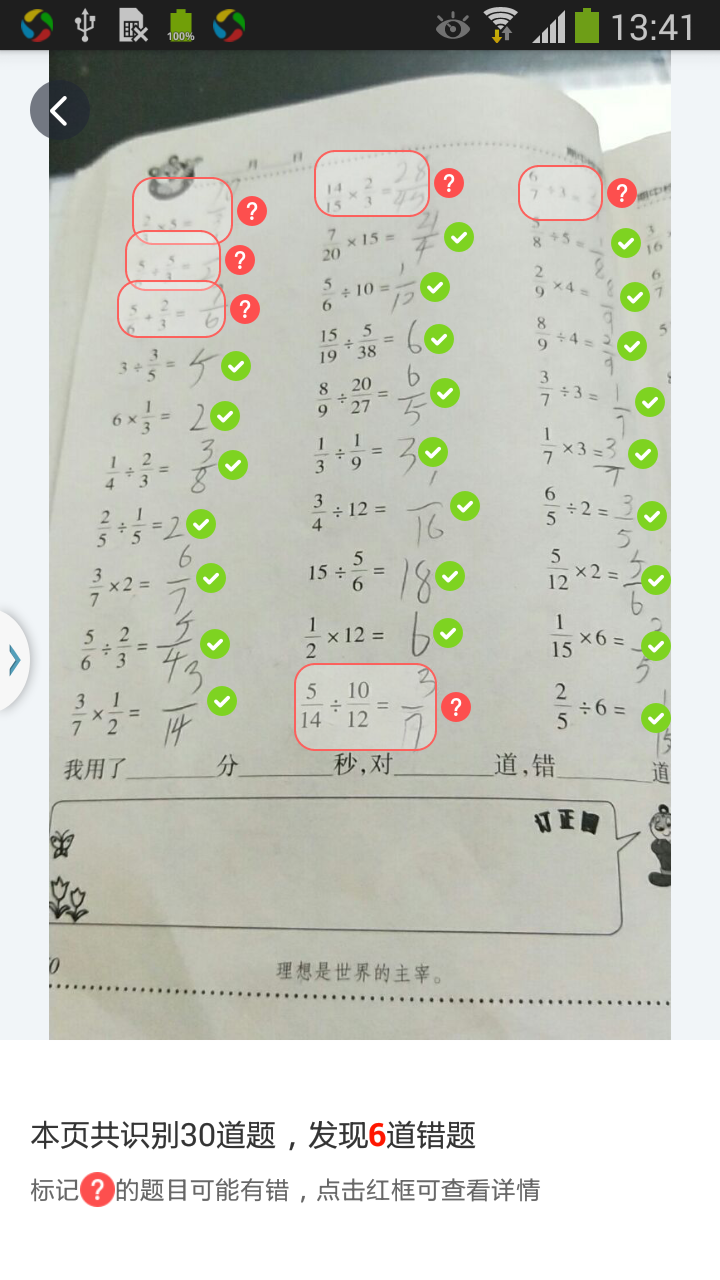 100%
13:41
月 日
3÷3/5= 5
6×1/3= 2
1/4÷2/3= 3/8
2/5÷1/5= 2
3/7×2= 6/7
5/6÷2/3= 5/4
3/7×1/2= 3/14
14/15×2/3= 28/45
7/20×15= 21/4
5/6÷10= 1/12
15/19÷5/38= 6
8/9÷20/27= 6/5
1/3÷1/9= 3
3/4÷12= 1/16
15÷5/6= 18
1/2×12= 6
5/14÷10/12= 3/7
6/7÷3=
5/8÷5= 1/8
2/9×4= 8/9
8/9÷4= 2/9
3/7÷3= 1/7
1/7×3= 3/7
6/5÷2= 3/5
5/12×2= 5/6
1/15×6= 2/5
2/5÷6= 1/15
3/16
6/7
5
我用了 分 秒,对 道,错 道
订正园
理想是世界的主宰。
本页共识别30道题，发现6道错题
标记?的题目可能有错，点击红框可查看详情